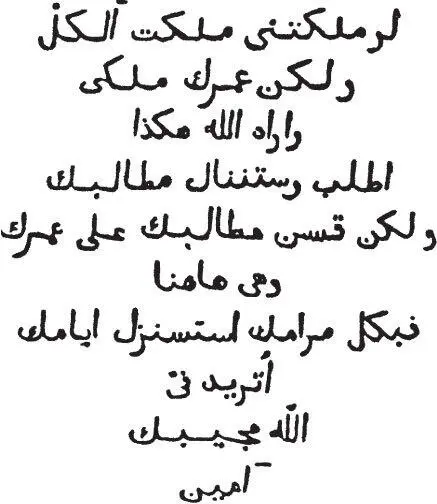 لو ملكتنى ملكت آلكل
ولكن عمرك ملكى
واراه الله هكذا
اطلب وستننال مطالبك
ولكن قسن مطالبك على عمرك
وهى هاهنا
فبكل مرامك استسنزل ايامك
أتريد نىّ
اللّه مجيبك
آمين